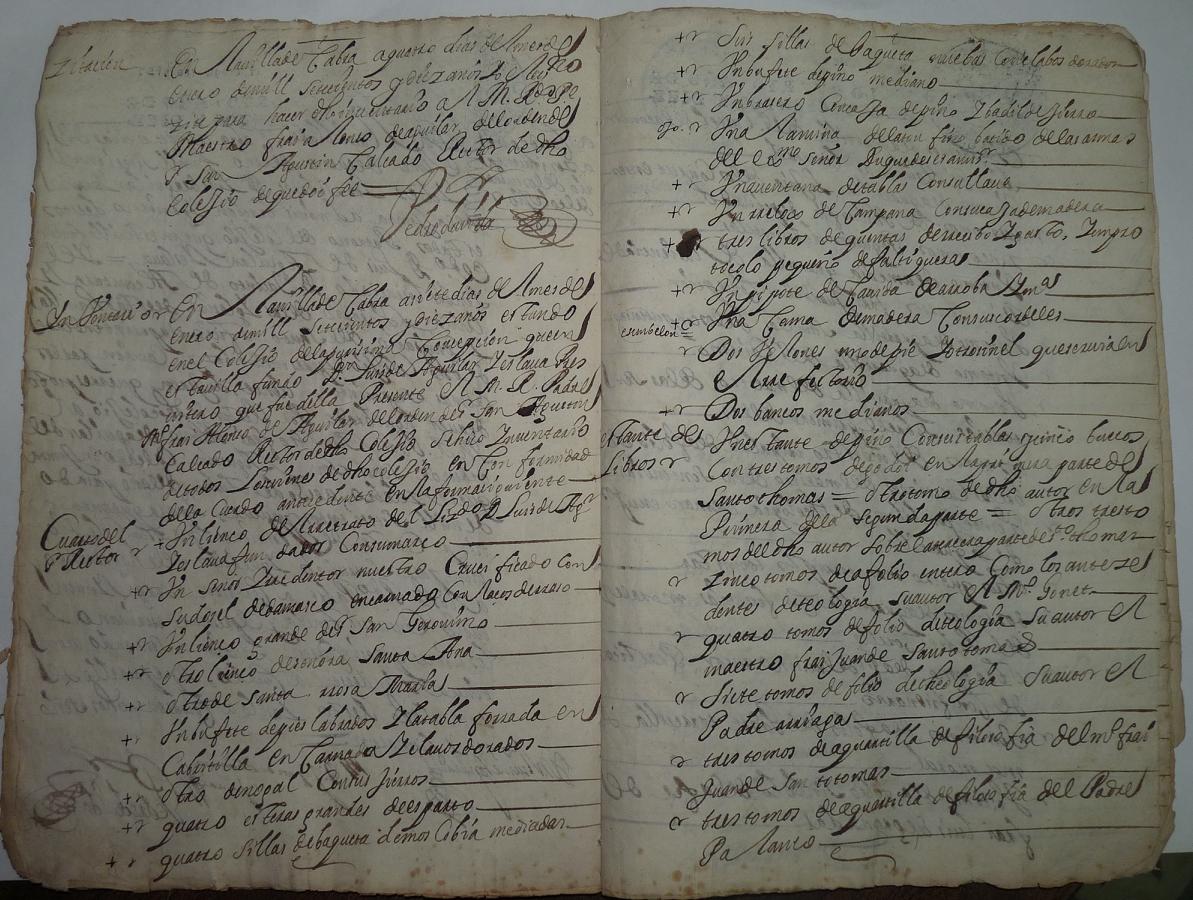 Zitacion
En la villa de Cabra a quatro dias del mes de
enero de mill setecientos y diez años Yo el ssno
zite para hacer dho inventario a el M. R. Pe
Maestro frai Alonso de aguilar del orden del
Sr San Agustin Calcado Rector de dho
Colesio de que doi fee
Inventario
En la villa de Cabra a siete dias del mes de
enero de mill setecientos y diez años estando
en el Colesio de la purisima Concepcion que en
esta villa fundo Dn Luis de Aguilar Zeslava Pres
vitero que fue de ella Presente el M. R. Padre
Mo frai Alonso de Aguilar del orden del Sr San Agustin
Calcado Rector de dho Colesio se hizo Inventario
de todos los vienes de dho colesio en Conformidad
de la Cuerdo antecedente en la forma siguiente
Cuarto del
Pe Rector
+ Un lienco del Retrato del Lizdo D Luis de Agr
Zeslava fundador Con su marco
+ Un señor Redentor nuestro Crucificado con
su dosel de damasco encarnado Con flecos de raso
+ Un lienco grande del Sr San Geronimo
+ otro lienco de señora Santa Ana
+ otro de Santa rrosa Maria
+ Un bufete de pies labrados Z la tabla forrada en
Cabritilla en Carnada Z clavos dorados
+ otro de nopal Con sus hierros
+ quatro esteras grandes de esparto
+ quatro sillas de baqueta de moscobia mediadas
+ Seis sillas de baqueta nuebas Con clabos dorados
+ Un bufete de pino mediano
+ Un brasero Con caxa de pino Z badil de hierro
ojo. Una lamina de laton fino de las armas
del exmo señor Duque de
+ Una ventana de tablas Con su llave
+ Un rrelox de Campana Con su caxa de madera
+ tres libros de quentas de recibo Z gasto, Z un pro
tocolo pequeño de faltriquera
+ Un pipote de Cavida de arroba Yma
+ Una Cama de madera Con sus cordeles
Dos Velones uno de pie Z otro sin el que servia en
el Refectorio
+ Dos bancos medianos
estante de
libros
Un estante de pino Con sus tablas y cinco buecos
Con tres tomos de godoi en la primera parte de
Santo thomas = otro tomo de dho autor en la
Primera de la segunda parte = otros tres to
mos del dho autor sobre la tercera parte de Sto thomas
Zinco tomos de a folio entero Como los anteze
dentes de teologia su autor el Mo Gonet
quatro tomos de folio de teologia Su autor el
maestro frai Juan de Santo tomas
Siete tomos de folio de theologia Su autor el
Padre arriaga
tres tomos de a quartilla de filosofia del mo frai
Juan de San to tomas
tres tomos de a quartilla de filosofia del Padre
Palanco